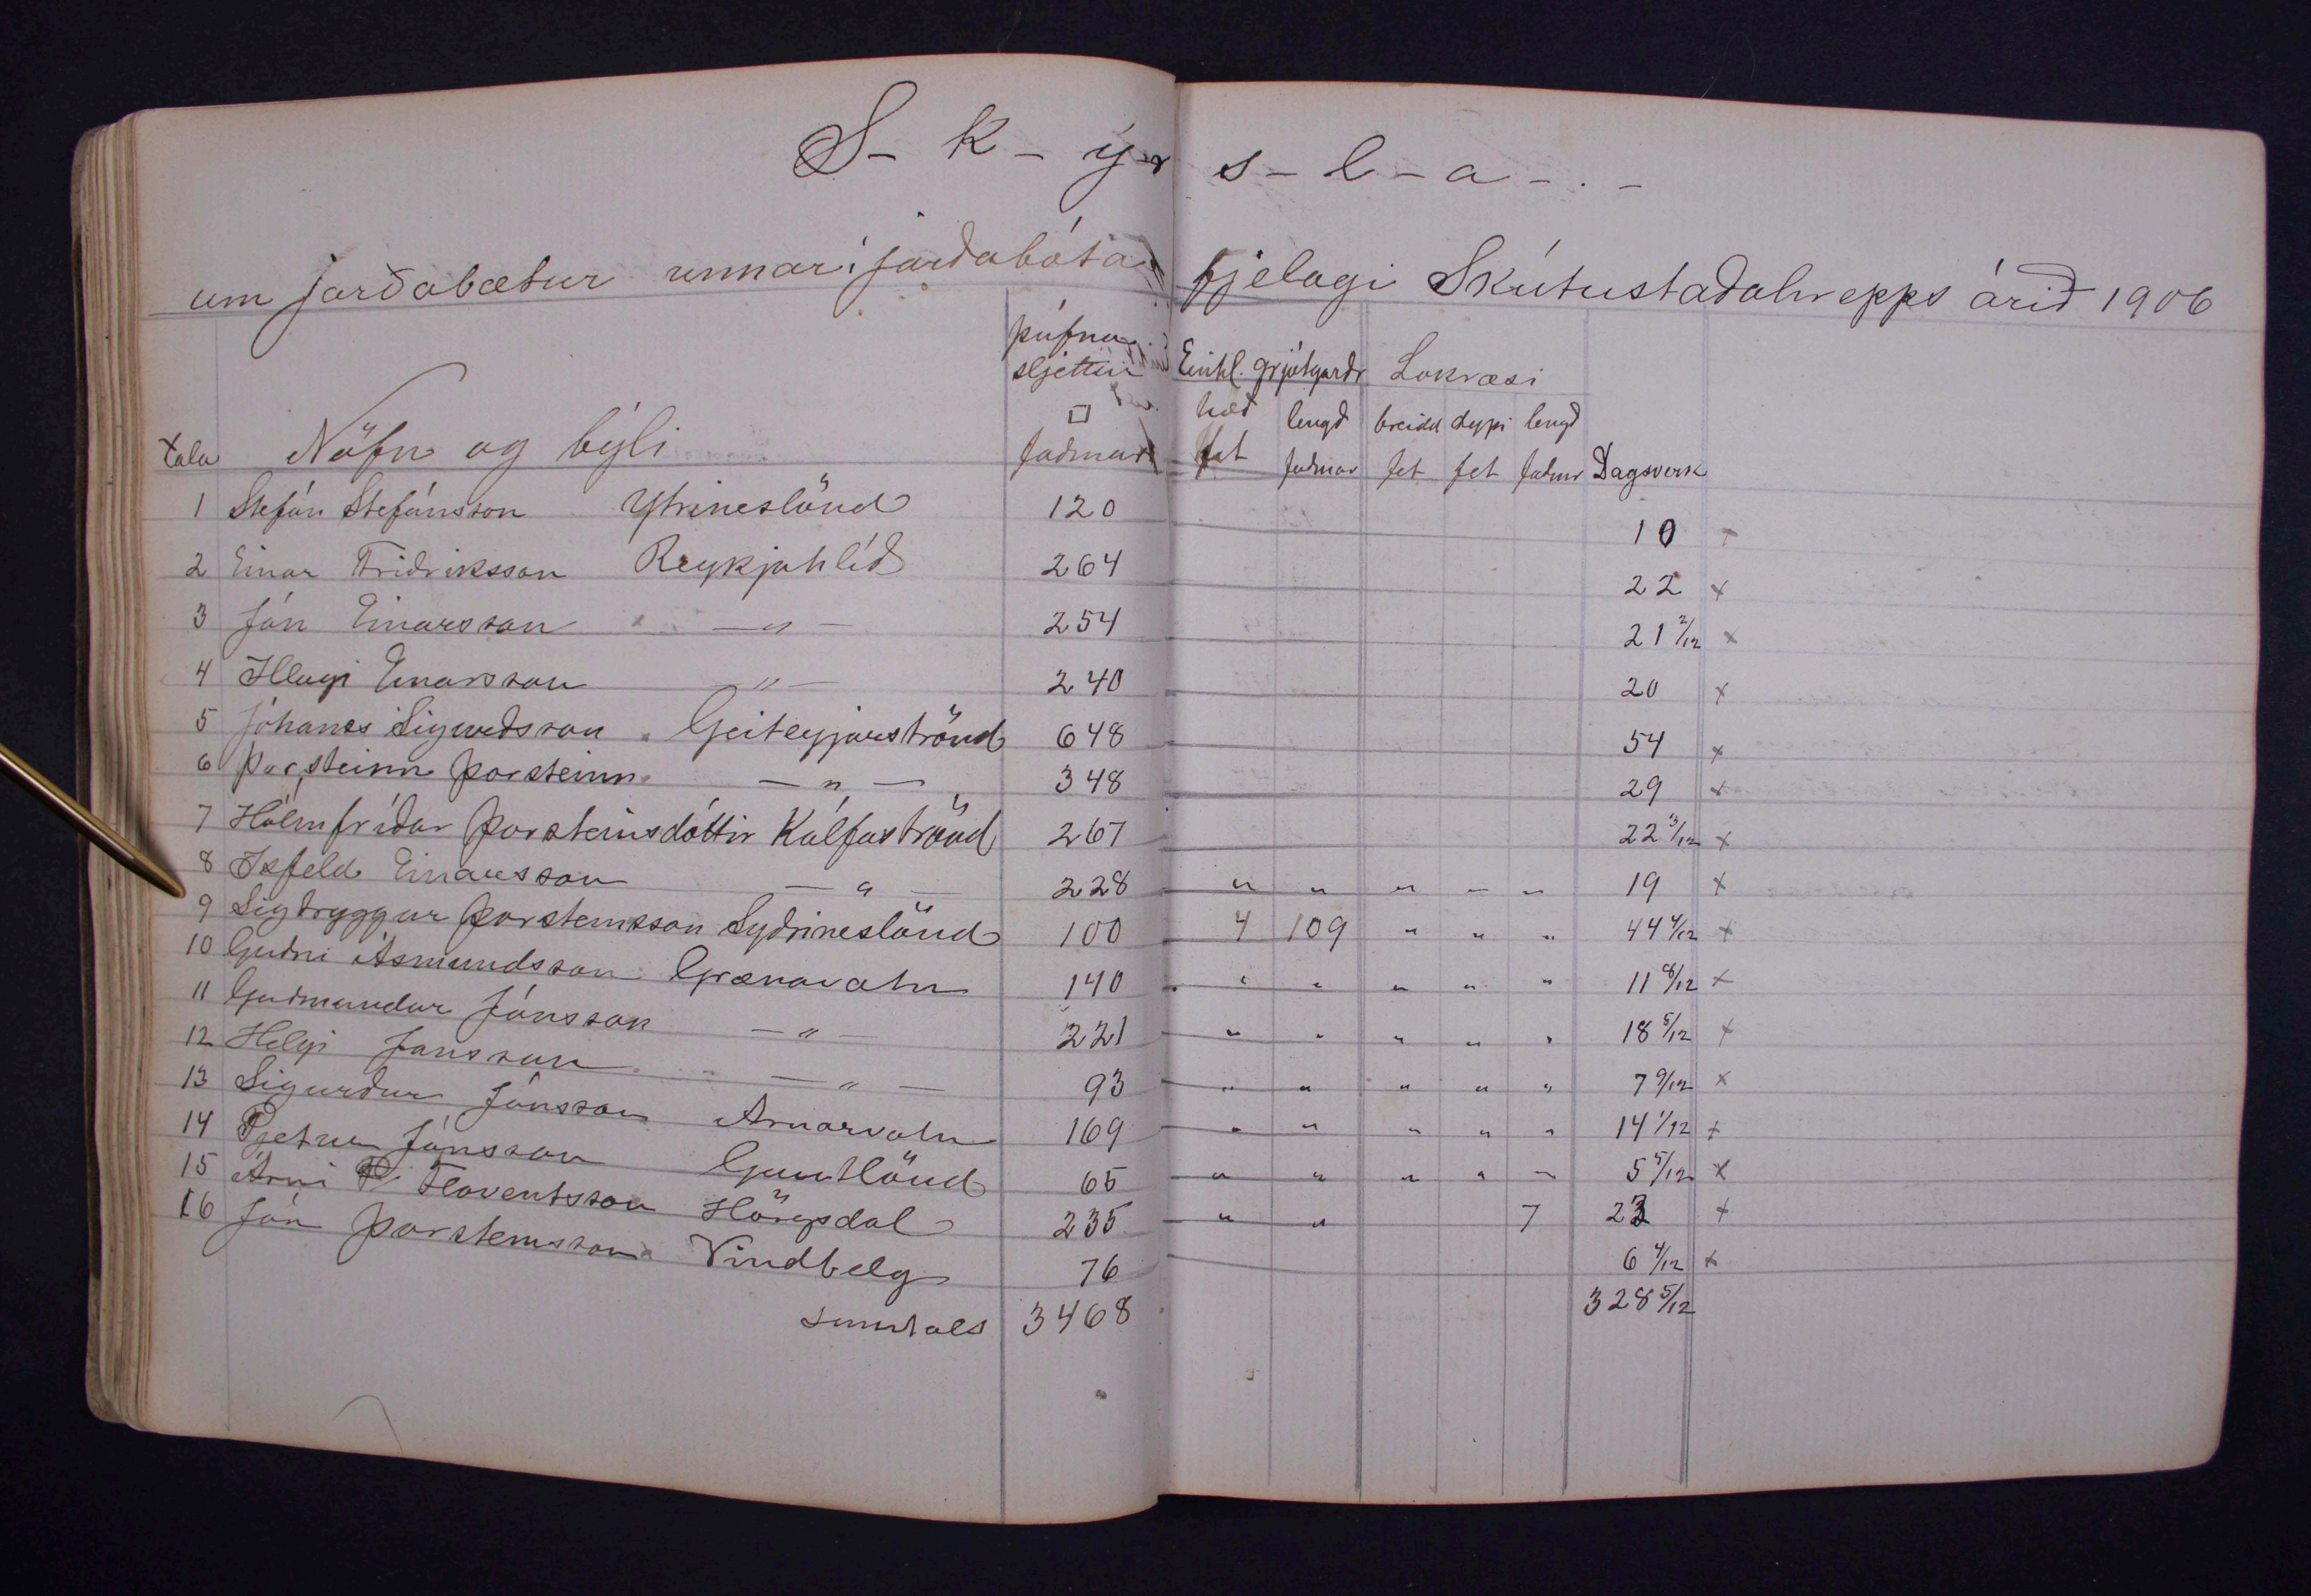 S - k - ý - r s - l - a - . -
um jarðabætur unnar í jarðabóta fjelagi Skútustaðahrepps árið 1906
þúfna Einhl. grjótgarðr Lokræsi
sljettun
□ hæð lengd breidd dýpi lengd
Tala Nöfn og býli faðmar fet faðmar fet fet faðmr Dagsverk
1 Stefán Stefánsson Ytrineslönd 120 10 +
2 Einar Friðriksson Reykjahlíð 264 22 x
3 Jón Einarsson — „ — 254 21 2/12 x
4 Illugi Einarsson — „ — 240 20 x
5 Jóhanes Sigurðsson Geiteyjarströnd 648 54 x
6 Þorsteinn Þorsteinn — „ — 348 29 x
7 Hólmfríður Þorsteinsdóttir Kálfaströnd 267 22 3/12 x
8 Ísfeld Einarsson — „ — 228 „ „ „ „ „ 19 x
9 Sigtryggur Þorsteinsson Syðrineslönd 100 4 109 „ „ „ 44 4/12 x
10 Guðni Ásmundsson Grænavatn 140 „ „ „ „ „ 11 8/12 x
11 Guðmundur Jónsson — „ — 221 „ „ „ „ „ 18 5/12 x
12 Helgi Jónsson — „ — 93 „ „ „ „ „ 7 9/12 x
13 Sigurður Jónsson Arnarvatn 169 „ „ „ „ „ 14 1/12 x
14 Pjetur Jónsson Gautlönd 65 „ „ „ „ „ 5 5/12 x
15 Árni Flóventsson Hörgsdal 235 „ „ 7 23 x
16 Jón Þorsteinsson Vindbelg 76 6 4/12 x
Samtals 3468 328 5/12